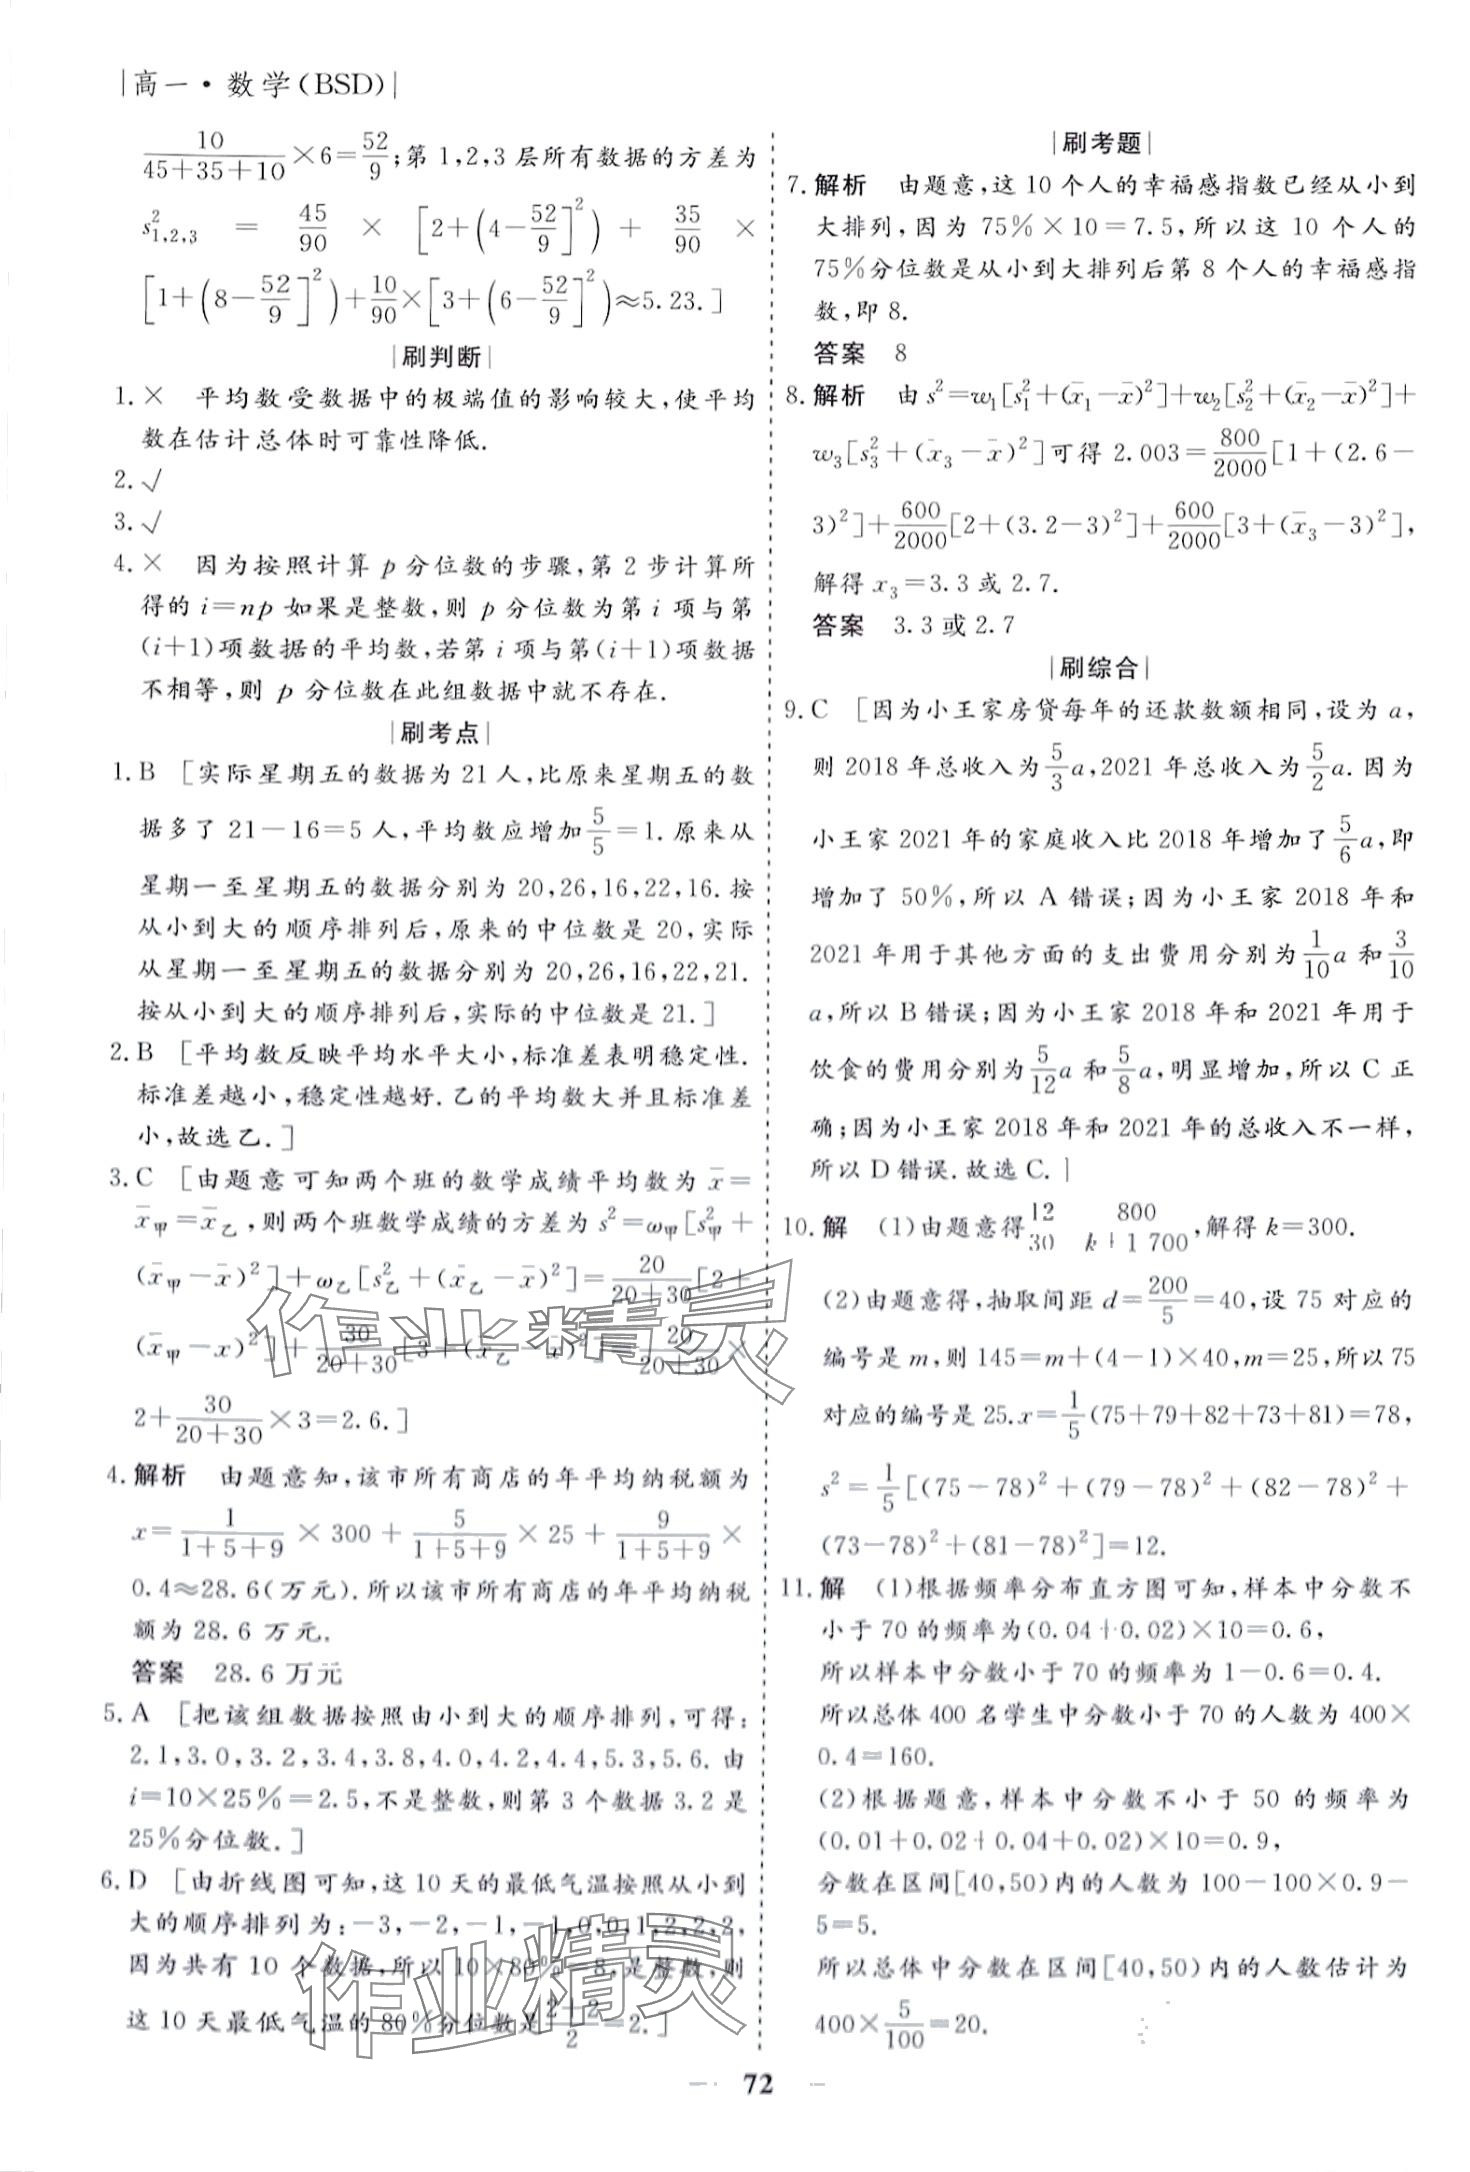 |高一·数学(BSD)|
10/(45+35+10)×6=52/9;第1,2,3层所有数据的方差为
s²₁,₂,₃ = 45/90 × [2+(4-52/9]²) + 35/90 ×
[1+(8-52/9]²)+10/90×[3+(6-52/9]²)≈5.23.]
|刷判断|
1.× 平均数受数据中的极端值的影响较大,使平均
数在估计总体时可靠性降低.
2.√
3.√
4.× 因为按照计算 p 分位数的步骤,第 2 步计算所
得的 i=np 如果是整数,则 p 分位数为第 i 项与第
(i+1)项数据的平均数,若第 i 项与第(i+1)项数据
不相等,则 p 分位数在此组数据中就不存在.
|刷考点|
1.B [实际星期五的数据为 21 人,比原来星期五的数
据多了 21-16=5 人,平均数应增加5/5=1.原来从
星期一至星期五的数据分别为 20,26,16,22,16.按
从小到大的顺序排列后,原来的中位数是 20,实际
从星期一至星期五的数据分别为 20,26,16,22,21.
按从小到大的顺序排列后,实际的中位数是 21.]
2.B [平均数反映平均水平大小,标准差表明稳定性.
标准差越小,稳定性越好.乙的平均数大并且标准差
小,故选乙.]
3.C [由题意可知两个班的数学成绩平均数为 x̄=
x̄甲=x̄乙,则两个班数学成绩的方差为 s²=ω甲[s²甲+
(x̄甲-x̄)²]+ω乙[s²乙+(x̄乙-x̄)²]=20/(20+30)[2+
(x̄甲-x)²]+30/(20+30)[3+(x̄乙-x̄)²]=20/(20+30)×
2+30/(20+30)×3=2.6.]
4.解析 由题意知,该市所有商店的年平均纳税额为
x=1/(1+5+9)×300+5/(1+5+9)×25+9/(1+5+9)×
0.4≈28.6(万元).所以该市所有商店的年平均纳税
额为 28.6 万元.
答案 28.6 万元
5.A [把该组数据按照由小到大的顺序排列,可得:
2.1,3.0,3.2,3.4,3.8,4.0,4.2,4.4,5.3,5.6.由
i=10×25%=2.5,不是整数,则第 3 个数据 3.2 是
25%分位数.]
6.D [由折线图可知,这 10 天的最低气温按照从小到
大的顺序排列为:-3,-2,-1,-1,0,0,1,2,2,2,
因为共有 10 个数据,所以 10×80%=8,是整数,则
这 10 天最低气温的 80%分位数是(2+2)/2=2.]
|刷考题|
7.解析 由题意,这 10 个人的幸福感指数已经从小到
大排列,因为 75%×10=7.5,所以这 10 个人的
75%分位数是从小到大排列后第 8 个人的幸福感指
数,即 8.
答案 8
8.解析 由 s²=w₁[s₁²+(x̄₁-x̄)²]+w₂[s₂²+(x̄₂-x̄)²]+
w₃[s₃²+(x̄₃-x̄)²]可得 2.003=800/2000[1+(2.6-
3)²]+600/2000[2+(3.2-3)²]+600/2000[3+(x̄₃-3)²],
解得 x₃=3.3 或 2.7.
答案 3.3 或 2.7
|刷综合|
9.C [因为小王家房贷每年的还款数额相同,设为 a,
则 2018 年总收入为5/3a,2021 年总收入为5/2a.因为
小王家 2021 年的家庭收入比 2018 年增加了5/6a,即
增加了 50%,所以 A 错误;因为小王家 2018 年和
2021 年用于其他方面的支出费用分别为1/10a 和3/10
a,所以 B 错误;因为小王家 2018 年和 2021 年用于
饮食的费用分别为5/12a 和5/8a,明显增加,所以 C 正
确;因为小王家 2018 年和 2021 年的总收入不一样,
所以 D 错误.故选 C.]
10.解 (1)由题意得12/30 800/(k+1 700),解得 k=300.
(2)由题意得,抽取间距 d=200/5=40,设 75 对应的
编号是 m,则 145=m+(4-1)×40,m=25,所以 75
对应的编号是 25.x=1/5(75+79+82+73+81)=78,
s²=1/5[(75-78)²+(79-78)²+(82-78)²+
(73-78)²+(81-78)²]=12.
11.解 (1)根据频率分布直方图可知,样本中分数不
小于 70 的频率为(0.04+0.02)×10=0.6,
所以样本中分数小于 70 的频率为 1-0.6=0.4.
所以总体 400 名学生中分数小于 70 的人数为 400×
0.4=160.
(2)根据题意,样本中分数不小于 50 的频率为
(0.01+0.02+0.04+0.02)×10=0.9,
分数在区间[40,50)内的人数为 100-100×0.9-
5=5.
所以总体中分数在区间[40,50)内的人数估计为
400×5/100=20.
72
作业精灵
作业精灵